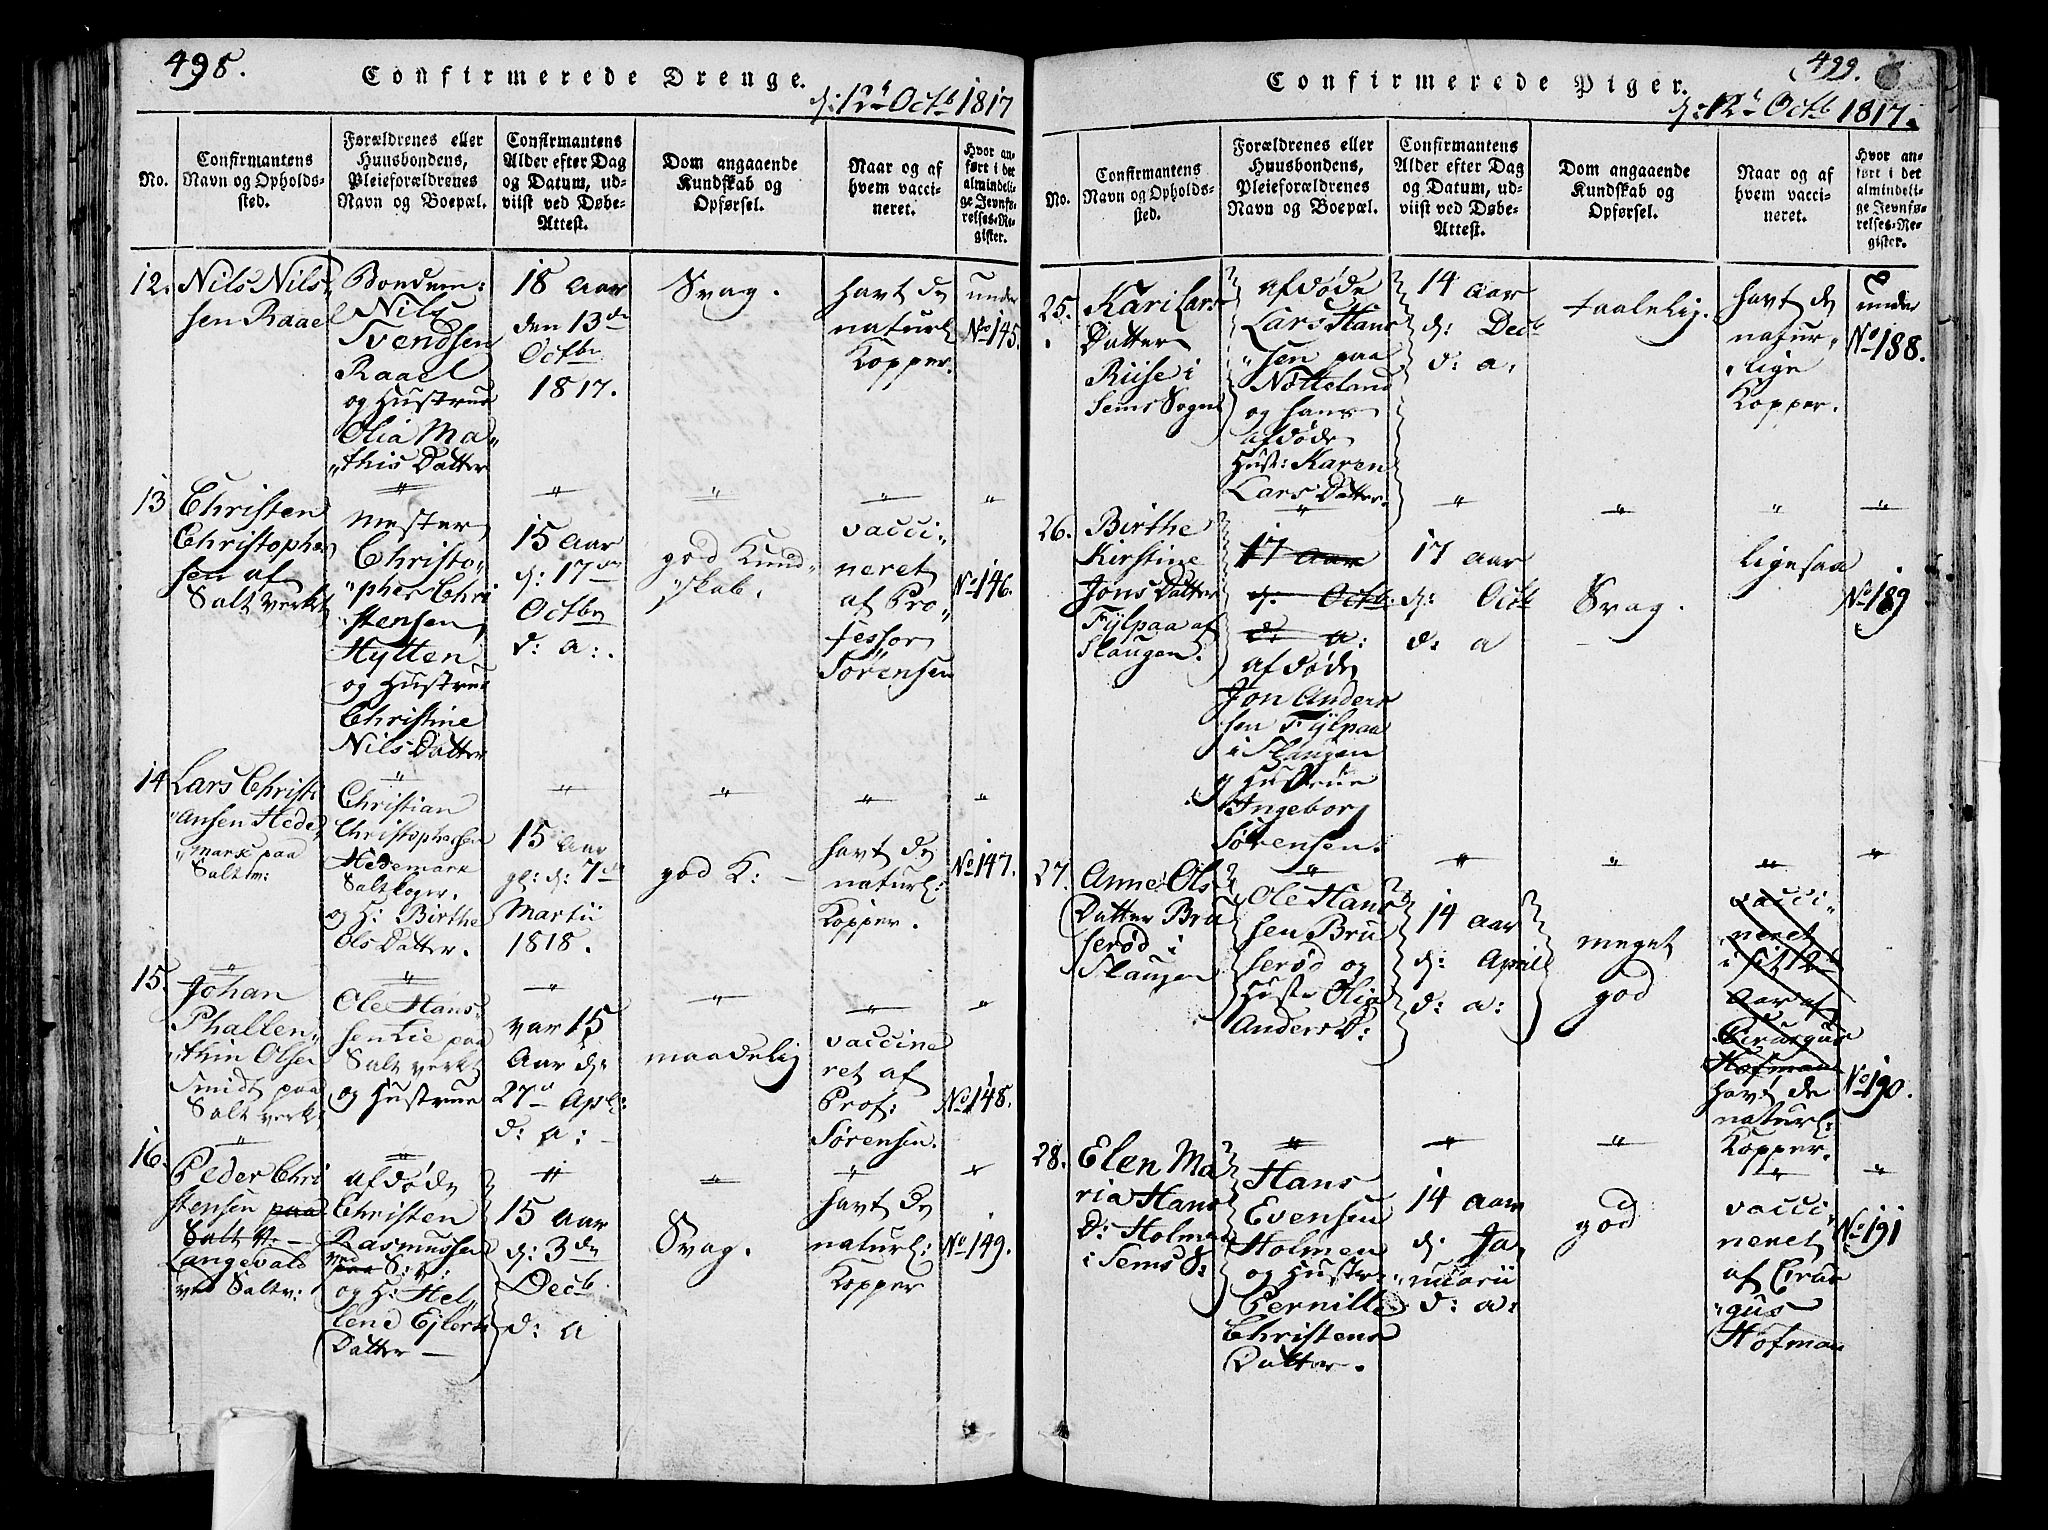 498.
Confirmerede Drenge.
d: 12te Octb 1817
No.
Confirmantens
Navn og Opholds-
sted.
Forældrenes eller
Huusbondens,
Pleieforældrenes
Navn og Boepæl.
Confirmantens
Alder efter Dag
og Datum, ud-
viist ved Døbe-
Attest.
Dom angaaende
Kundskab og
Opførsel.
Naar og af
hvem vacci-
neret.
Hvor an-
ført i det
almindeli-
ge Jevnfø-
relses-Re-
gister.
12.
Nils Nils
sen Raael
Bonden:
Nils
Svendsen
Raael
og Hustrue
Olia Ma-
"this Datter
18 Aar
den 13de
Octbr
1817.
Svag.
havt de
naturl
Kopper.
under
No 145.
13
Christen
Christopher
sen af
Salt verkt
mester
Christo"
"pher Chri
stensen
Hytten
og Hustrue
Christine
Nils Datter
15 Aar
d: 17de
Octbr
d: a:.
god Kund-
"skab.
vacci-
neret
af Pro-
fessor
Sørensen
No 146.
14
Lars Christi
"ansen Hede
"mark paa
Saltv:
Christian
Christophersen
Hedemark
Saltkoger.
og H: Birthe
Ols Datter.
15 Aar
gl: d: 7de
Martii
1818.
god K: -
havt de
naturl:
Kopper.
No 147.
15.
Johan
Phallen"
"thin Olsen
Smidt paa
Salt verkt
Ole Hans-
sen Lie paa
Salt verkt
og Hustrue
var 15
Aar d:
27de Apl:
d: a: -
maadelig
vaccine
ret af
Prof:
Sørensen.
No 148.
16.
Peder Chri
stensen paa
Salt v. -
Langevald
ved Saltv:
afdøde
Christen
Rasmussen
ved
paa S: v:
og H: Hel"
lene Ejlerts
Datter -
15 Aar
d: 3de
Decb
d: a
Svag.
havt de
naturl:
Kopper
No 149.
499.
Confirmerede Piger.
d: 12te Octb 1817.
No.
Confirmantens
Navn og Opholds-
sted.
Forældrenes eller
Huusbondens,
Pleieforældrenes
Navn og Boepæl.
Confirmantens
Alder efter Dag
og Datum, ud-
viist ved Døbe-
Attest.
Dom angaaende
Kundskab og
Opførsel.
Naar og af
hvem vacci-
neret.
Hvor an-
ført i det
almindeli-
ge Jevnfø-
relses-Re-
gister.
25.
Kari Lars
Datter
Riise i
Sems Sogn
afdøde
Lars Hans
"sen paa
Nøtteland
og hans
afdøde
Hust: Karen
Lars Datter.
14 Aar
d: Decb
d: a.
taalelig.
havt de
natur"
"lige
Kopper.
under
No 188.
26.
Birthe
Kirstine
Jons Datter
Fylpaa af
Slaugen.
17 Aar
d: Octb.
d: a:
afdøde
Jon Anders
sen Fylpaa
i Slaugen
og Hustrue
Ingeborg
Sørensen.
17 Aar
d: Octb
d: a
Svag.
ligesaa
No 189
27.
Anne Ols
Datter Bru
serød i
Slaugen
Ole Hans
sen Bru
serød og
Hustr Olia
Anders D:
14 Aar
d: April
d: a:
meget
god
vacci-
neret
i sit 12te
Aar af
Cirurgus
Hofman
havt de
naturl:
Kopper.
No 190.
28.
Elen Ma
ria Hans
D: Holmen
i Sems S:
Hans
Evensen
Holmen
og Hustrue
Pernille
Christens
Datter.
14 Aar
d. Ja"
"nuarii
d: a:
god
vacci"
neret
af Cirur
"gus
Hofman
No 191